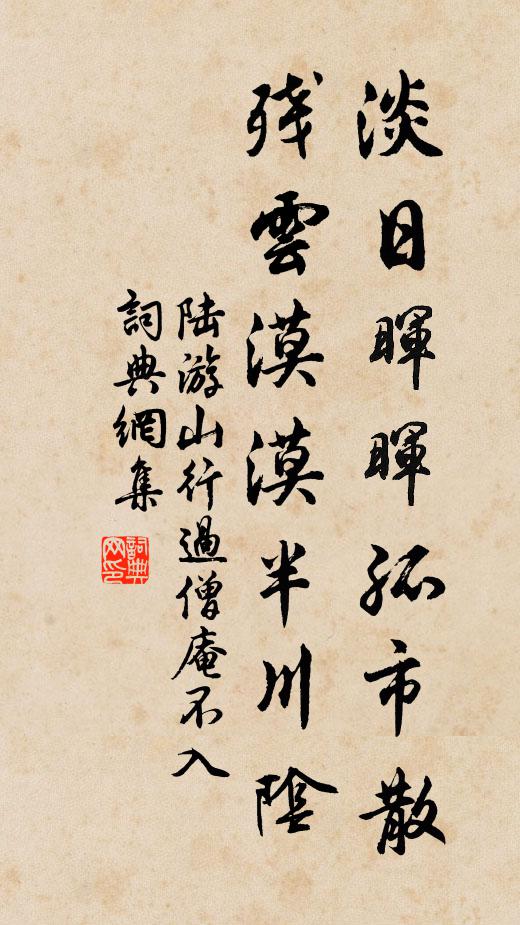 淡日暉暉孤市散
殘雲漠漠半川陰
陆游山行過僧庵不入
詞典網集
詞典网印